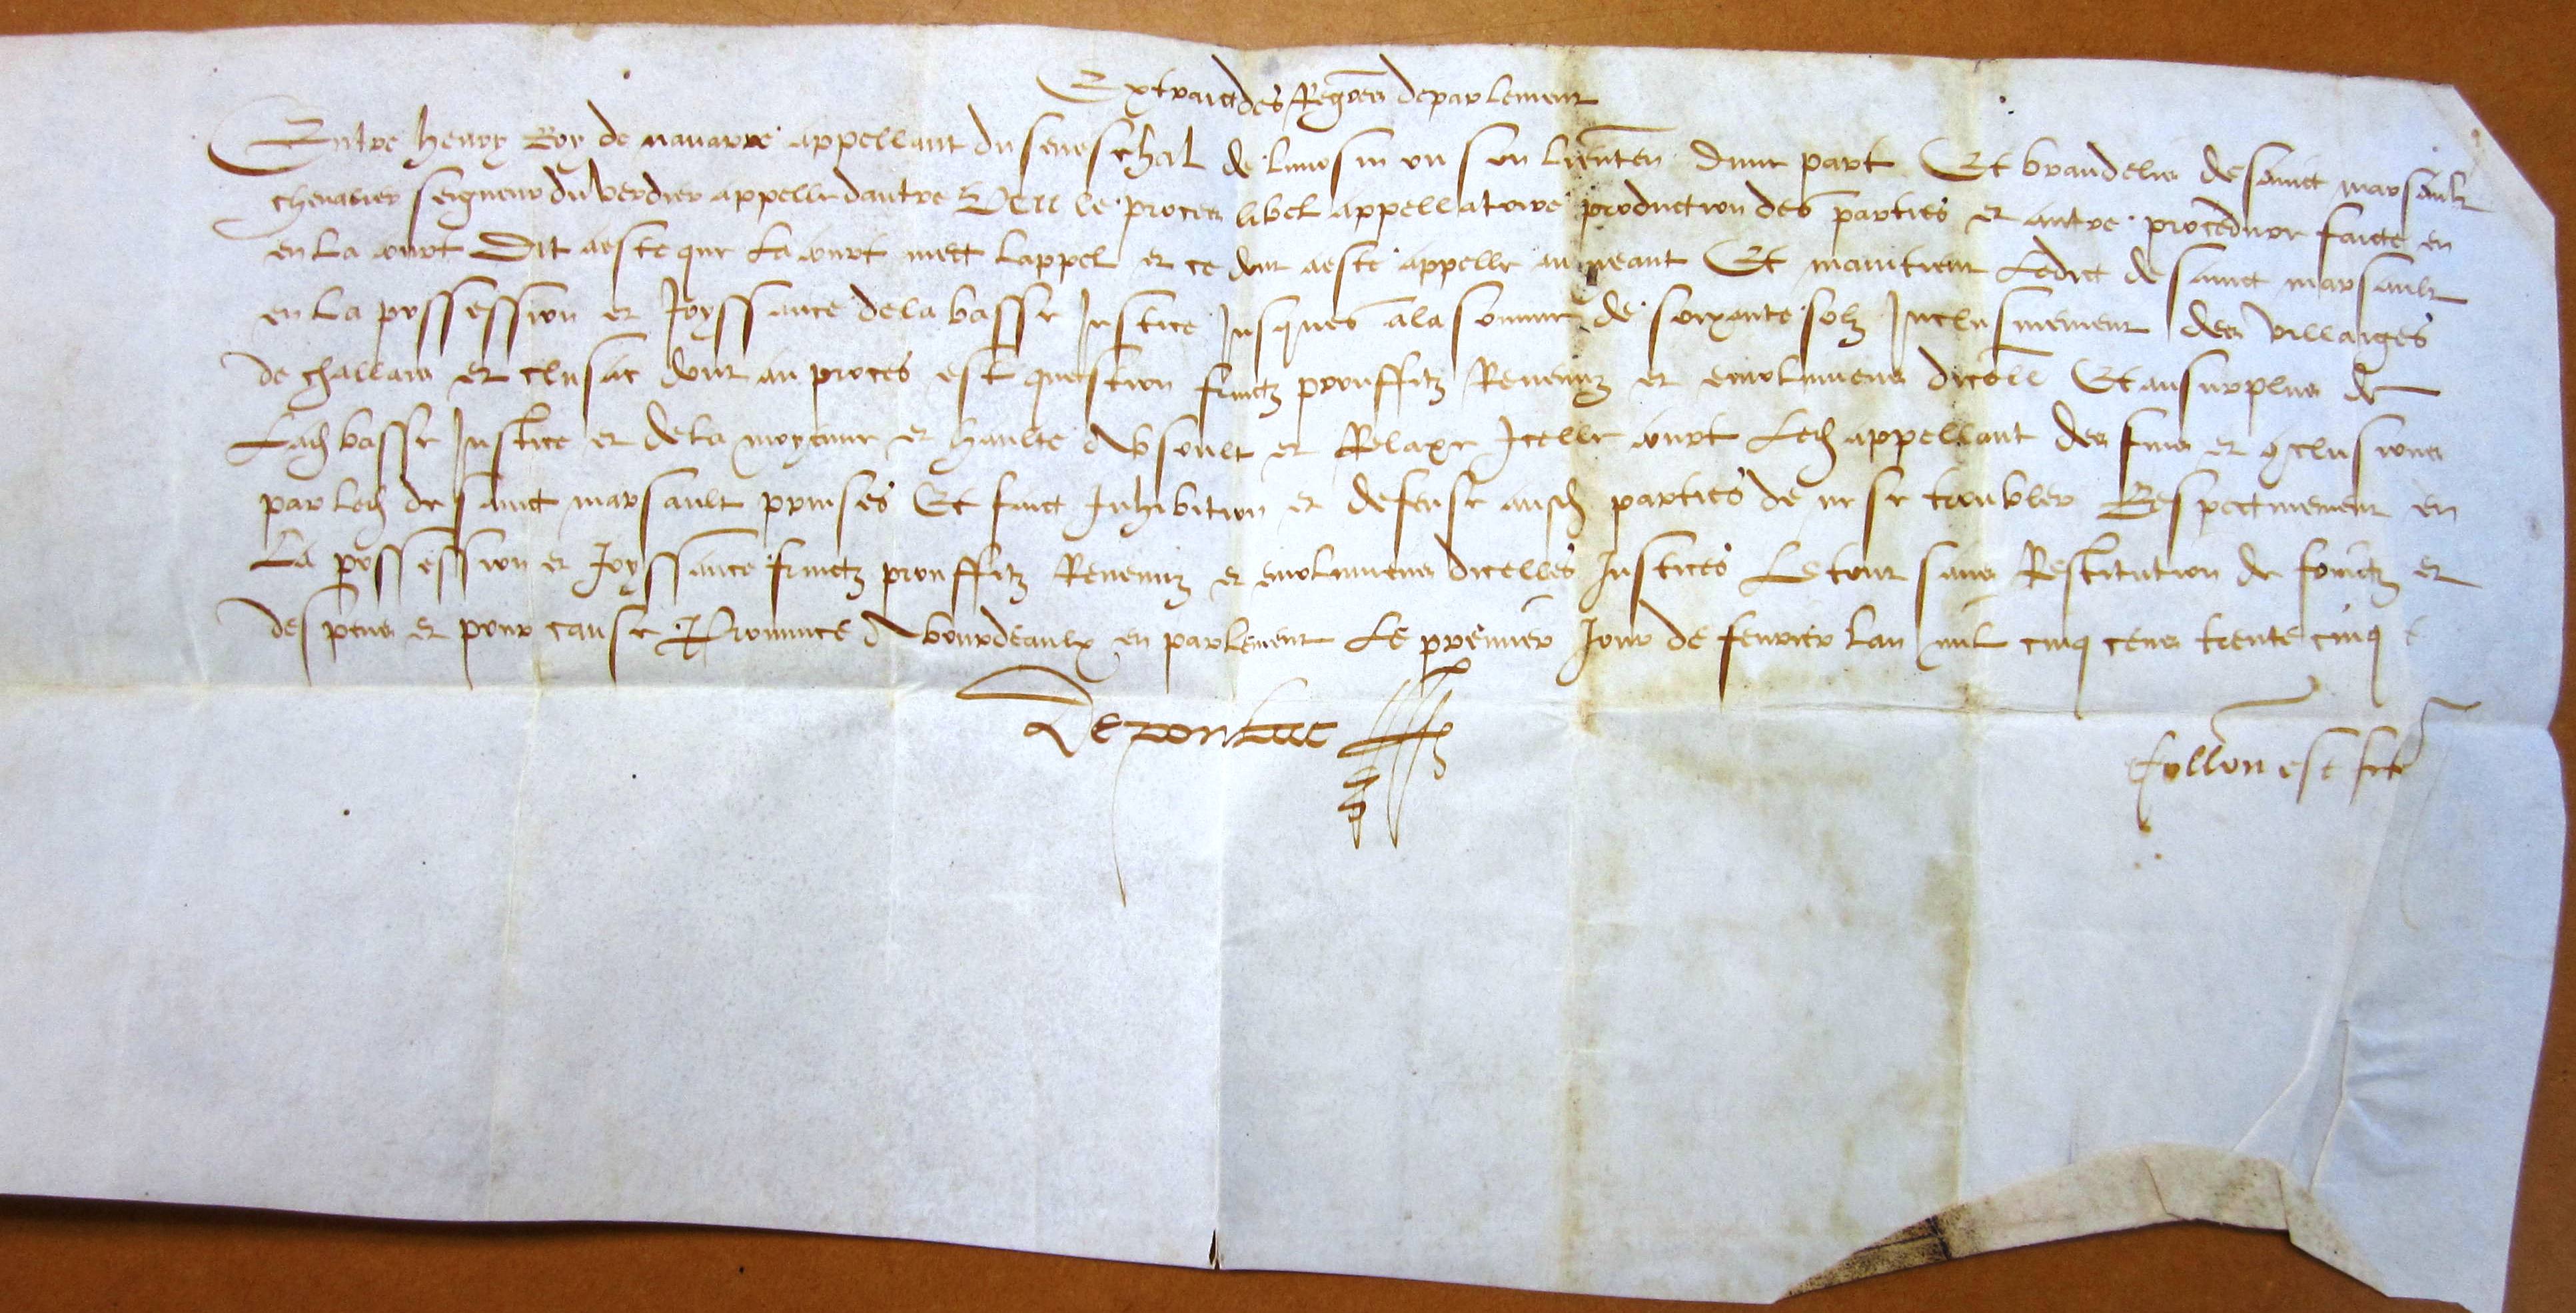 Extraict des Regres de parlement
Entre henry Roy de nauarre appellant du seneschal de lymosin ou son lieuten dune part Et brandelis de sainct marsault
cheualier seigneur du verdier appelle dautre Veu le proces libel appellatoire production des parties et autre procedure faicte en
en la court Dit a este que la court mect lappel et ce dont a este appelle au neant Et maintient Ledict de sainct marsault
en la possession et Joyssance de la basse Justice Jusques a la somme de soixante solz Inclusiuement des villaiges
de challais et clusac dont au proces est question fruictz prouffitz Reuenuz et emolumens dicelle Et au surplus de
Lad basse Justice et de la moyenne et haulte Absoult et Relaxe Icelle court Led appellant des fins et conclusions
par led de sainct marsault prinses Et faict Inhibition et defense ausd parties de ne se troubler Respectiuement en
La possession et Joyssance fruictz prouffitz Reuenuz et emolumens dicelles Justices Le tout sans Restitution de fruictz et
despens et pour cause Prononce A bourdeaulx en parlement Le premier Jour de feurier lan mil cinq cens trente cinq
De pontac
collon est fcte